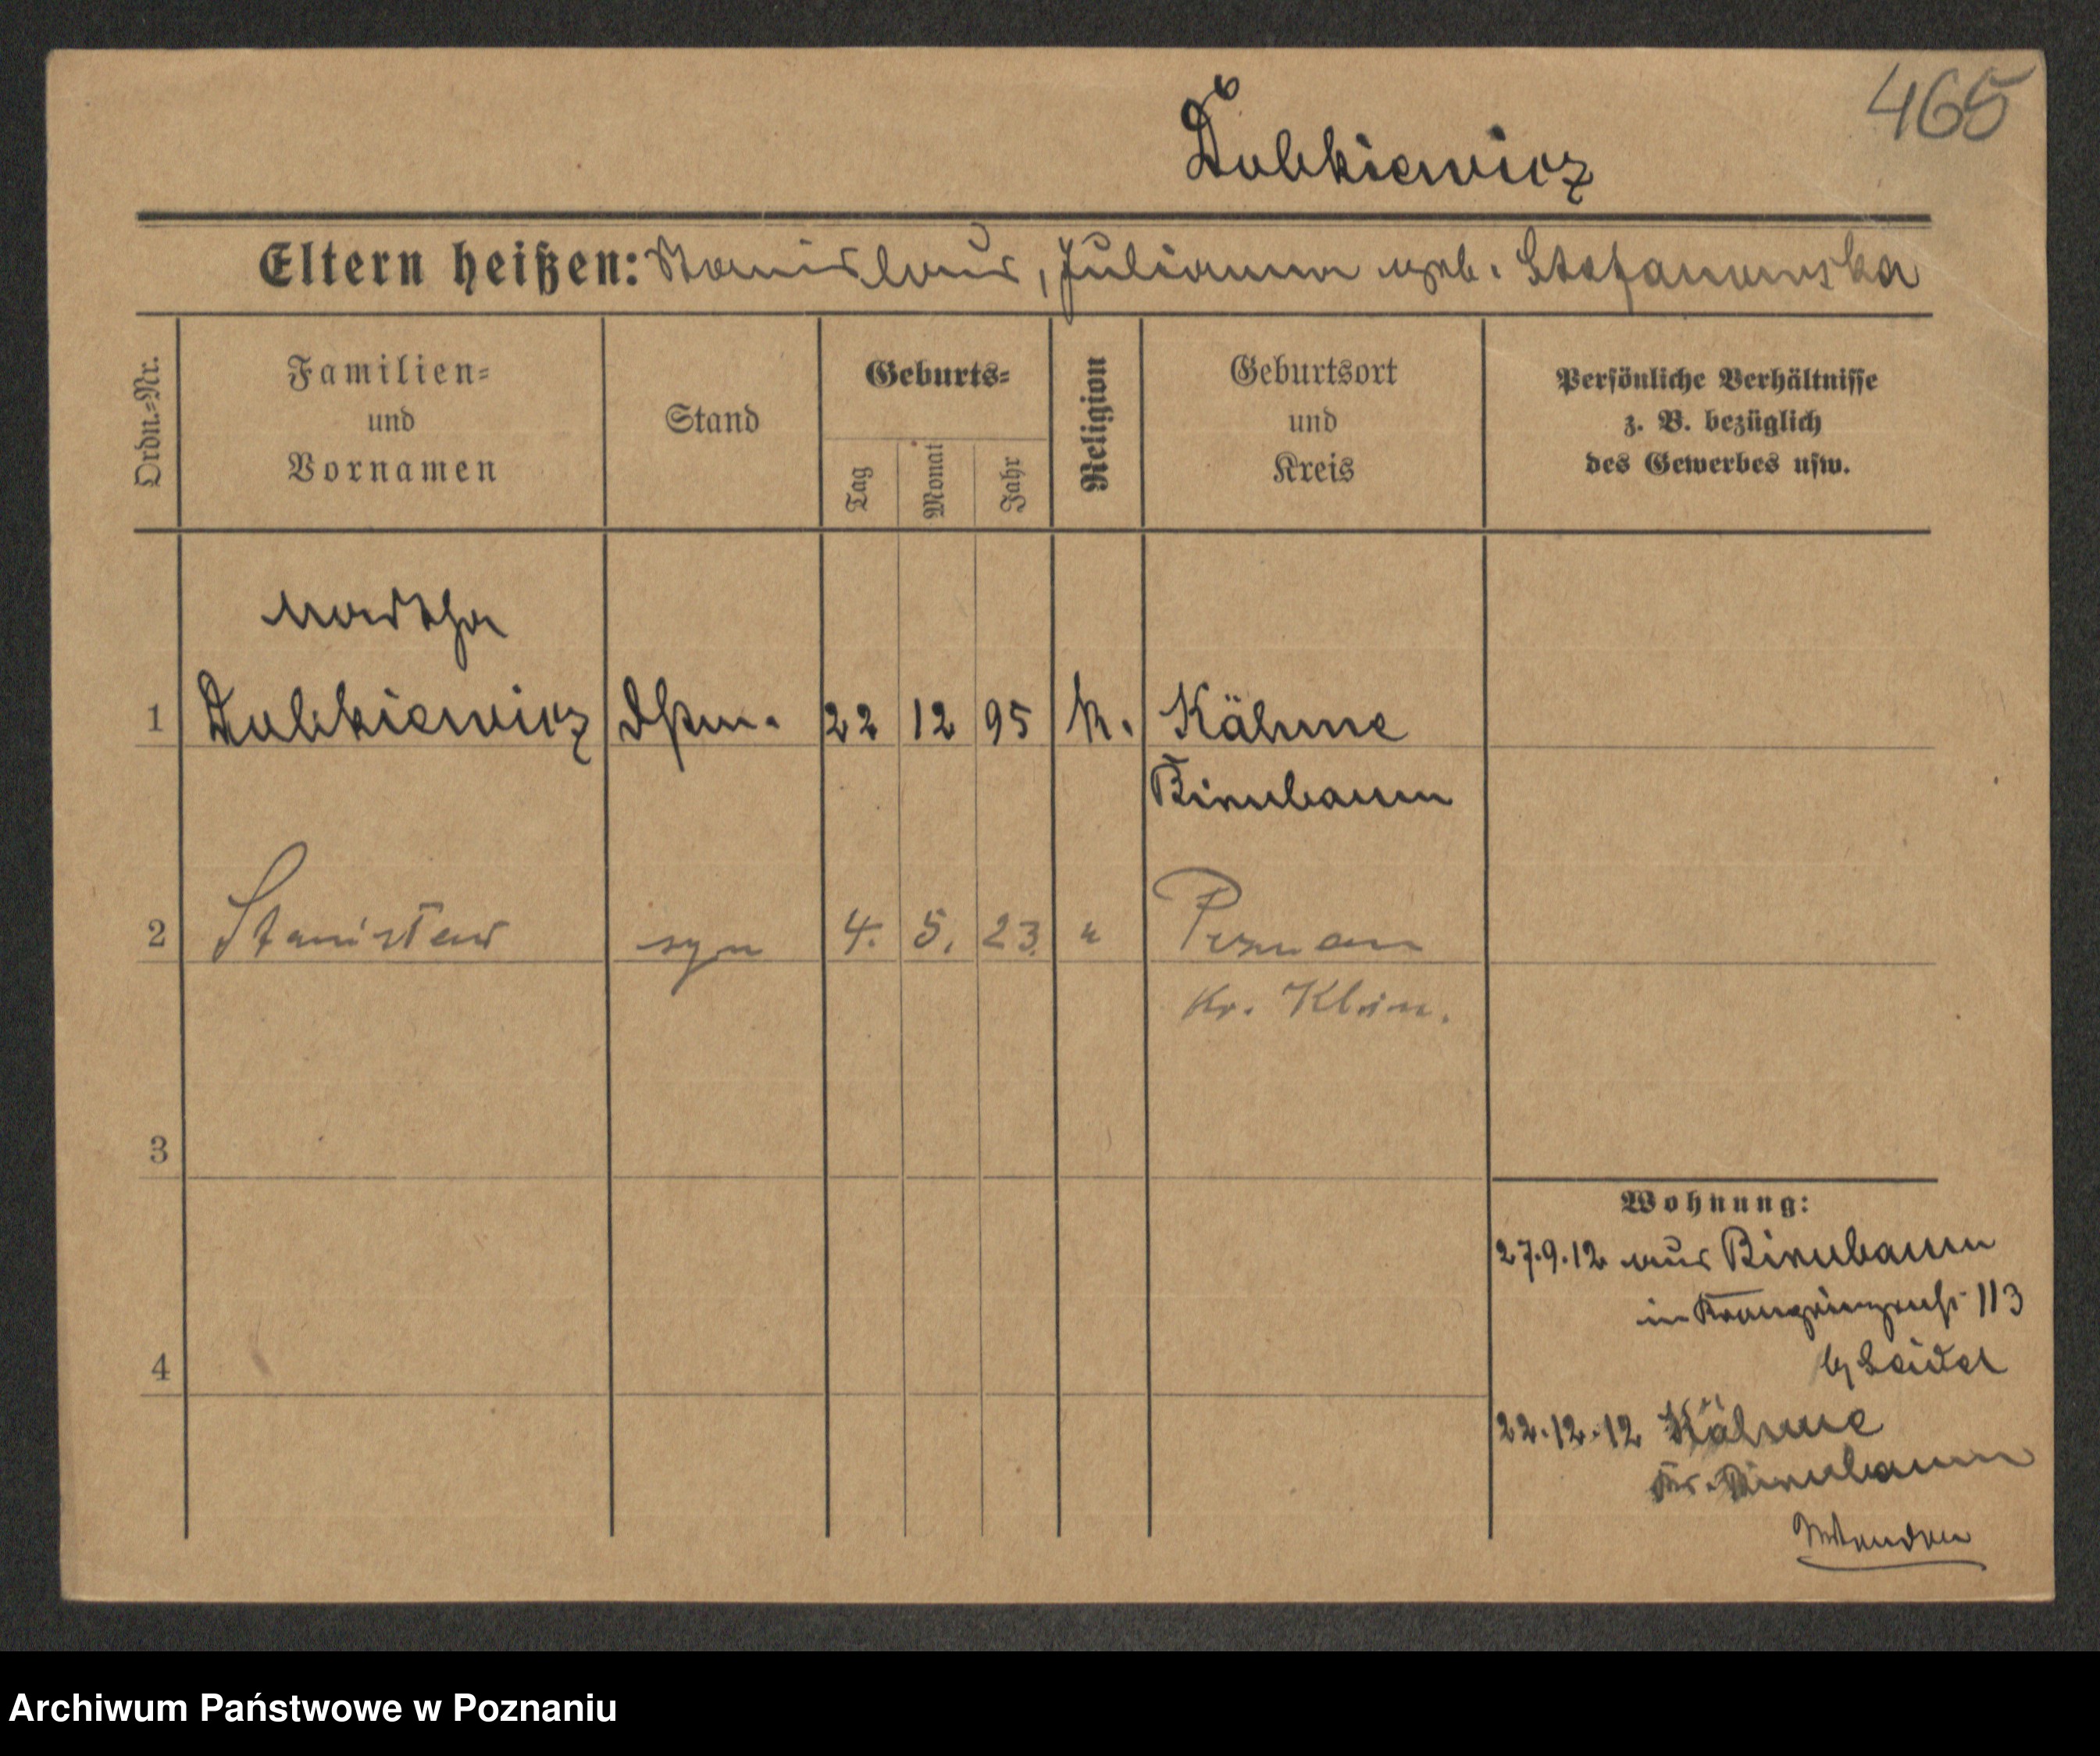 465
Dubkiewicz
Eltern heißen: Stanislaus, Julianna geb. Stefanowska
Ordn.-Nr.
Familien-
und
Vornamen
Stand
Geburts-
Tag
Monat
Jahr
Religion
Geburtsort
und
Kreis
Persönliche Verhältnisse
z. B. bezüglich
des Gewerbes usw.
Martha
1 Dubkiewicz 22 12 95 k. Kähme
Birnbaum
2 Stanisław syn 4. 5. 23. "
Kr.
3
4
Wohnung:
27.9.12 aus Birnbaum
in Kronprinzenst 113
b/ Seidel
22.12.12 Kähme
Kr. Birnbaum
Archiwum Państwowe w Poznaniu